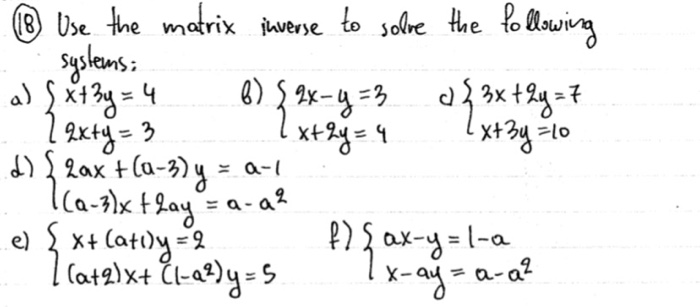 ⑱ Use the matrix inverse to solve the following
systems:
a) { x+3y = 4 b) { 2x-y=3 c) { 3x+2y=7
2x+y = 3 x+2y = 4 x+3y=10
d) { 2ax + (a-3)y = a-1
(a-3)x + 2ay = a-a²
e) { x+(a+1)y=2 f) { ax-y = 1-a
(a+2)x+(1-a²)y=5 x-ay = a-a²